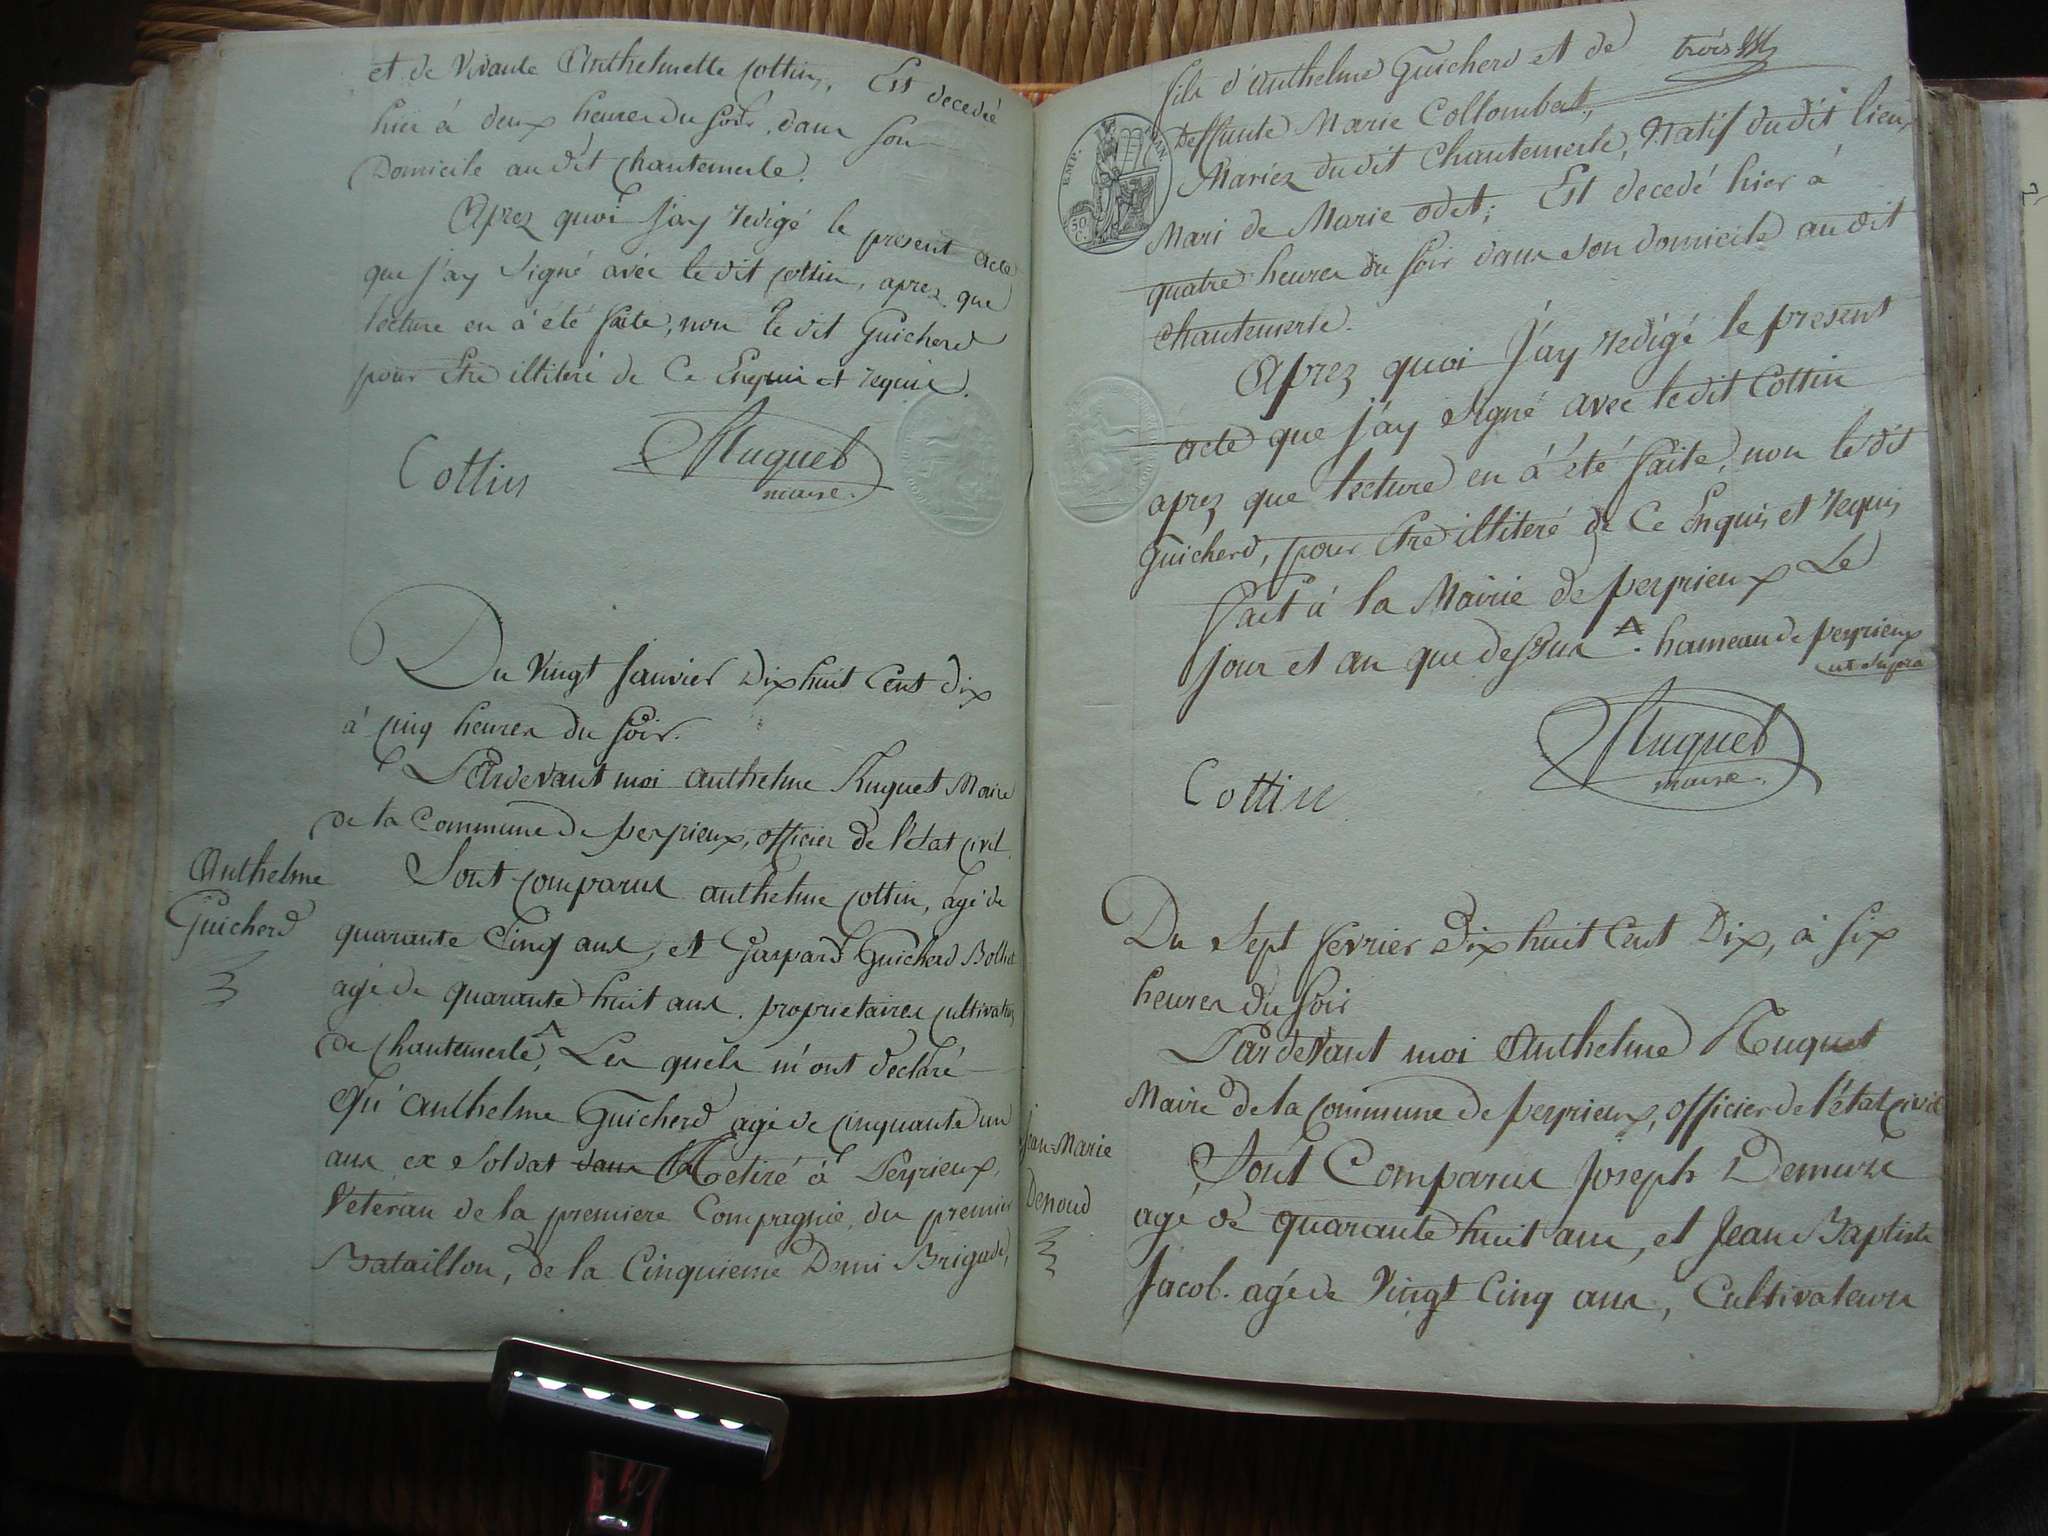 et de vivante Anthelmette Cottin, Est decedé
hier à deux heures du soir, dans son
Domicile au dit Chantemerle.
Aprez quoi j'ay redigé le present acte
que j'ay signé avéc le dit Cottin, aprez que
lecture en à été faite, non le dit Guicherd
pour Etre illiteré de Ce Enquis et requis.
Cottin
Huguet
maire.
Du vingt janvier Dix huit Cent dix
à cinq heures du soir.
Pardevant moi anthelme Huguet Maire
de la Commune de peyrieux, officier de l'état civil.
Sont comparus anthelme Cottin, agé de
quarante Cinq ans, et Gaspard Guicherd
agé de quarante huit ans. proprietaires cultivateurs
de Chantemerle, Les quels m'ont déclaré
Qu'anthelme Guicherd agé de cinquante un
ans ex soldat dans Retiré à Peyrieux,
Vétéran de la premiere Compagnie, du premier
Bataillon, de la Cinquieme Demi Brigade,
Anthelme
Guicherd
trois
fils d'Anthelme Guicherd et de
Deffunte Marie Collombat,
Mariéz du dit Chantemerle, Natif du dit lieu,
Mari de Marie odet; Est decedé hier à
quatre heures du soir dans son domicile au dit
Chantemerle.
Aprez quoi j'ay redigé le present
acte que j'ay signé avec le dit Cottin
aprez que lecture en à été faite, non le dit
Guicherd, pour Etre illiteré de Ce Enquis et requis
fait à la Mairie de peyrieux Le
jour et an que dessus. hameau de peyrieux
ut supra
Cottin
Huguet
maire.
Du Sept fevrier Dix huit Cent Dix, à six
heures du soir
Pardevant moi Anthelme Huguet
Maire de la Commune de peyrieux, officier de l'état civil
Sont Comparus Joseph Demure
agé de quarante huit ans, et Jean Baptiste
Jacob. agé de Vingt Cinq ans, Cultivateurs
Jean-Marie
Denoud
EMP.
50
C.